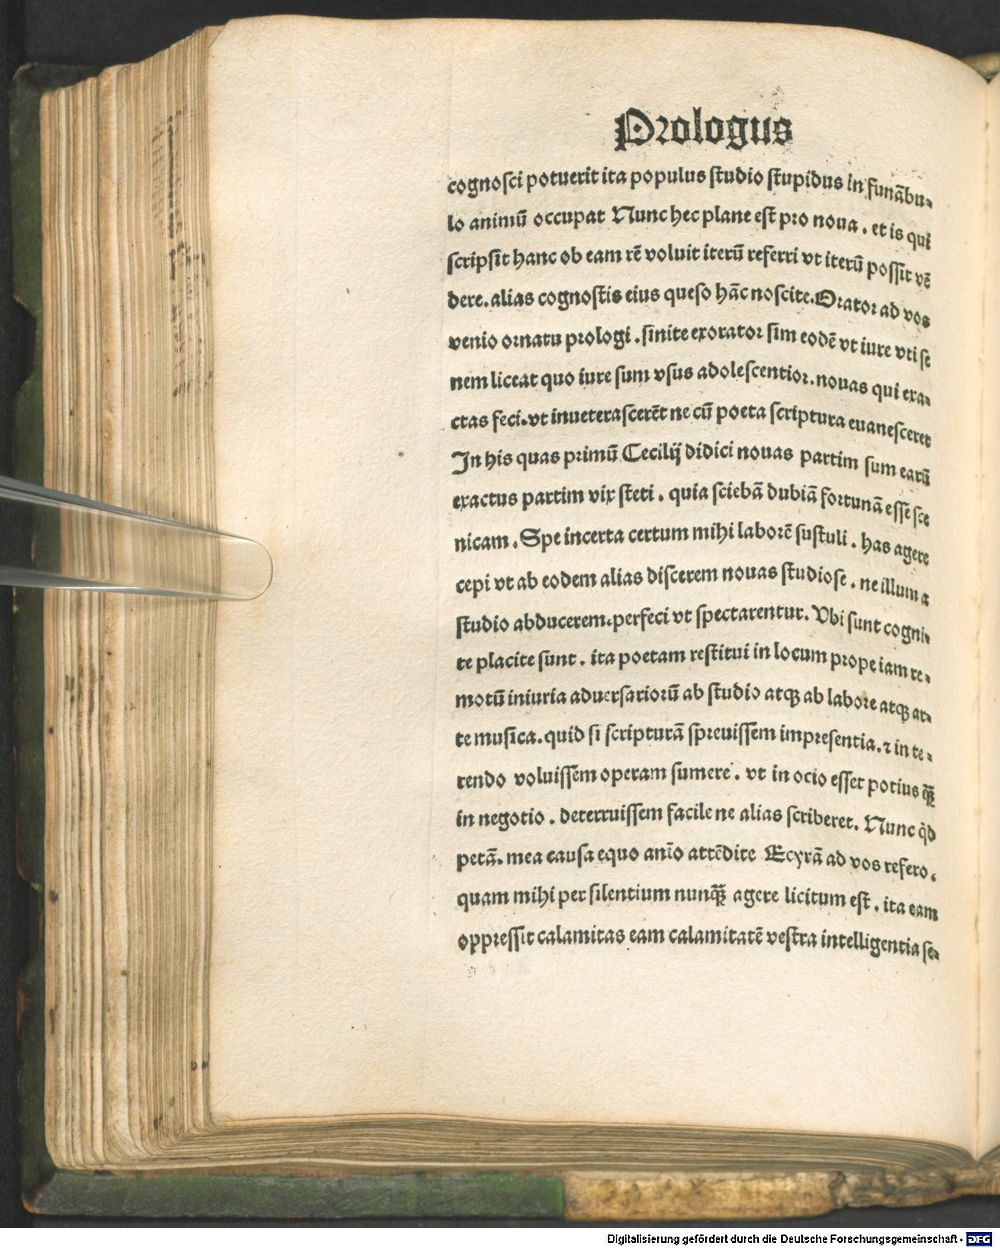 Prologus
cognosci potuerit ita populus studio stupidus in funãbu-
lo animũ occupat Nunc hec plane est pro noua. et is qui
scripsit hanc ob eam rẽ voluit iterũ referri vt iterũ possit vẽ
dere. alias cognostis eius queso hãc noscite. Orator ad vos
venio ornatu prologi. sinite exorator sim eodẽ vt iure vti se
nem liceat quo iure sum vsus adolescentior. nouas qui exa-
ctas feci. vt inueterascerẽt ne cũ poeta scriptura euanesceret
In his quas primũ Cecilij didici nouas partim sum earũ
exactus partim vix steti. quia sciebã dubiã fortunã esse sce
nicam. Spe incerta certum mihi laborẽ sustuli. has agere
cepi vt ab eodem alias discerem nouas studiose. ne illum a
studio abducerem. perfeci vt spectarentur. Vbi sunt cogni-
te placite sunt. ita poetam restitui in locum prope iam re-
motũ iniuria aduersariorũ ab studio atqꝫ ab labore atqꝫ ar-
te musica. quid si scripturã spreuissem impresentia. ⁊ in te-
rendo voluissem operam sumere. vt in ocio esset potius qꝫ̃
in negotio. deterruissem facile ne alias scriberet. Nunc qd̃
petã. mea causa equo anĩo attẽdite Ecyrã ad vos refero.
quam mihi per silentium nunqꝫ̃ agere licitum est. ita eam
oppressit calamitas eam calamitatẽ vestra intelligentia se-
Digitalisierung gefördert durch die Deutsche Forschungsgemeinschaft - DFG